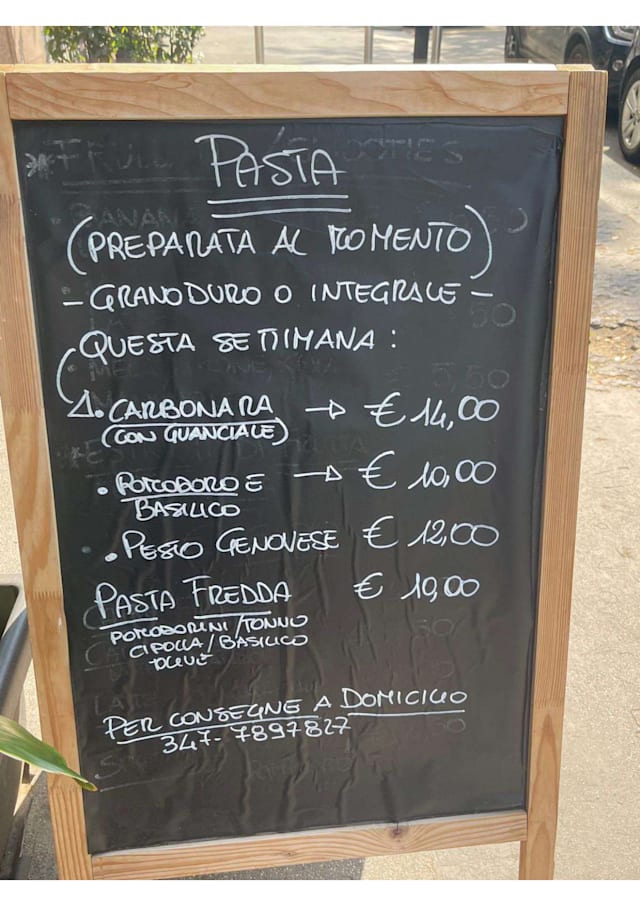 PASTA
(PREPARATA AL MOMENTO)
- GRANODURO O INTEGRALE -
QUESTA SETTIMANA :
• CARBONARA → € 14,00
(CON GUANCIALE)
• POMODORO E → € 10,00
BASILICO
• PESTO GENOVESE € 12,00
PASTA FREDDA € 10,00
POMODORINI/TONNO
CIPOLLA/BASILICO
OLIVE
PER CONSEGNE A DOMICILIO
347-7897827